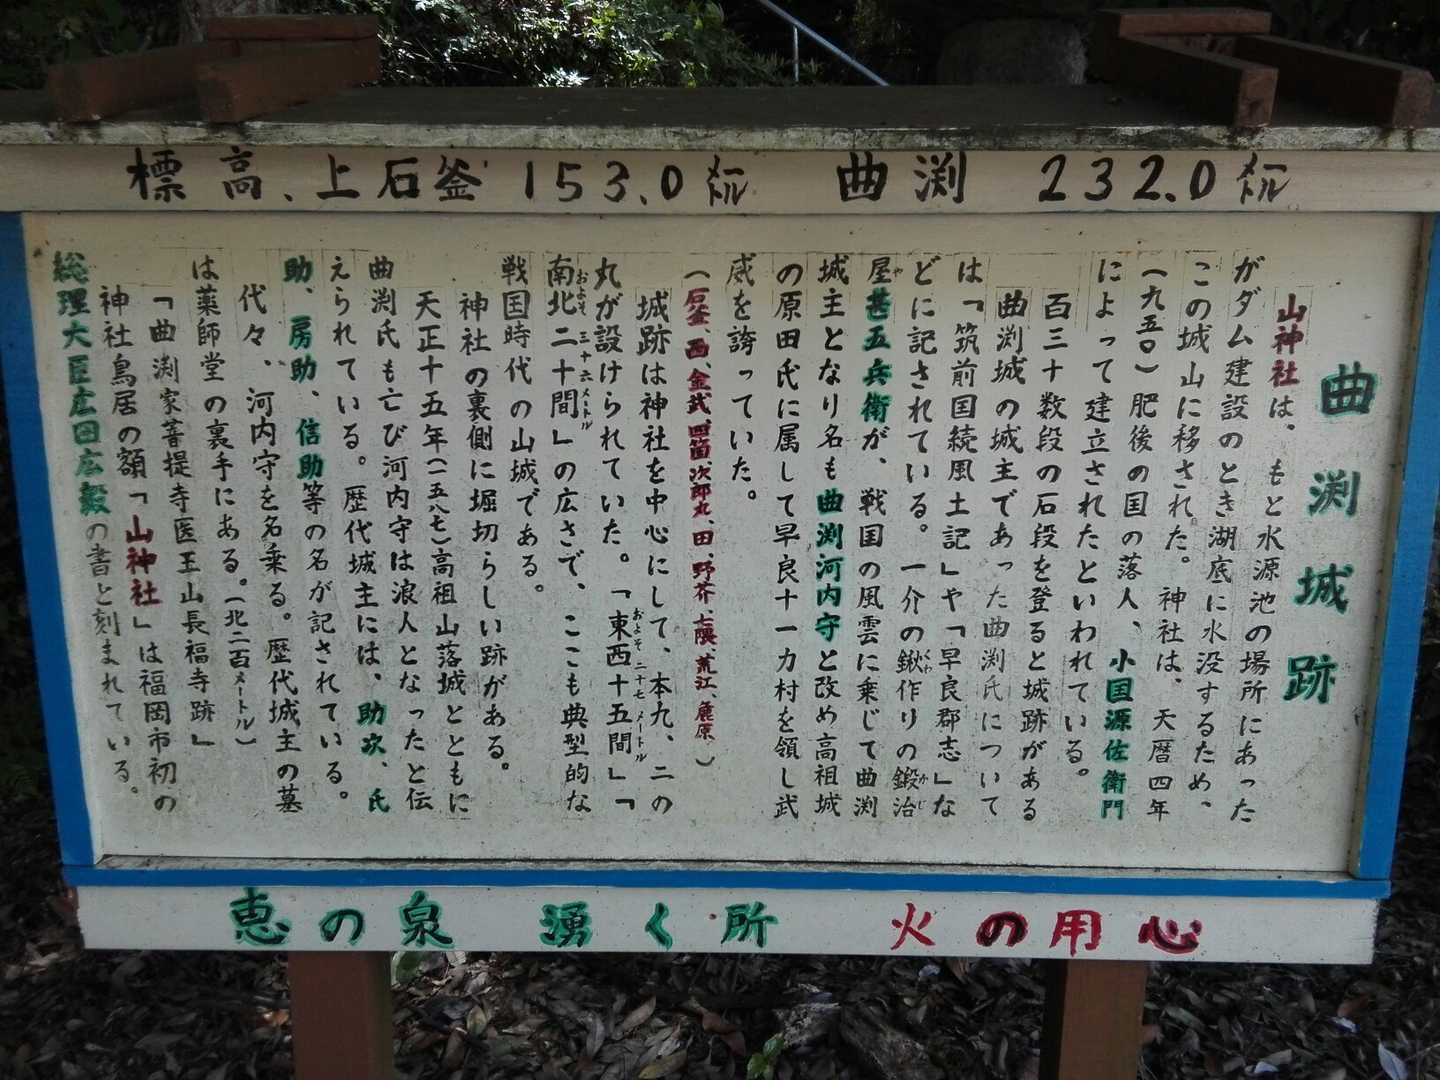 標高、上石釜 153.0 メートル 曲渕 232.0 メートル
曲渕城跡
山神社は、もと水源池の場所にあった
がダム建設のとき湖底に水没するため、
この城山に移された。神社は、天暦四年
(九五〇)肥後の国の落人、小国源佐衛門
によって建立されたといわれている。
百三十数段の石段を登ると城跡がある
曲渕城の城主であった曲渕氏について
は「筑前国続風土記」や「早良郡志」な
どに記されている。一介の鍬作りの鍛冶
屋甚五兵衛が、戦国の風雲に乗じて曲渕
城主となり名も曲渕河内守と改め高祖城
の原田氏に属して早良十一カ村を領し武
威を誇っていた。
(石釜、西、金武、四箇、次郎丸、田、野芥、七隈、荒江、庭原)
城跡は神社を中心にして、本丸、二の
丸が設けられていた。「東西十五間」「
南北二十間」の広さで、ここも典型的な
戦国時代の山城である。
神社の裏側に堀切らしい跡がある。
天正十五年(一五八七)高祖山落城とともに
曲渕氏も亡び河内守は浪人となったと伝
えられている。歴代城主には、助次、氏
助、房助、信助等の名が記されている。
代々、河内守を名乗る。歴代城主の墓
は薬師堂の裏手にある。(北二百メートル)
「曲渕家菩提寺医王山長福寺跡」
神社鳥居の額「山神社」は福岡市初の
総理大臣広田広毅の書と刻まれている。
恵の泉 湧く所 火の用心